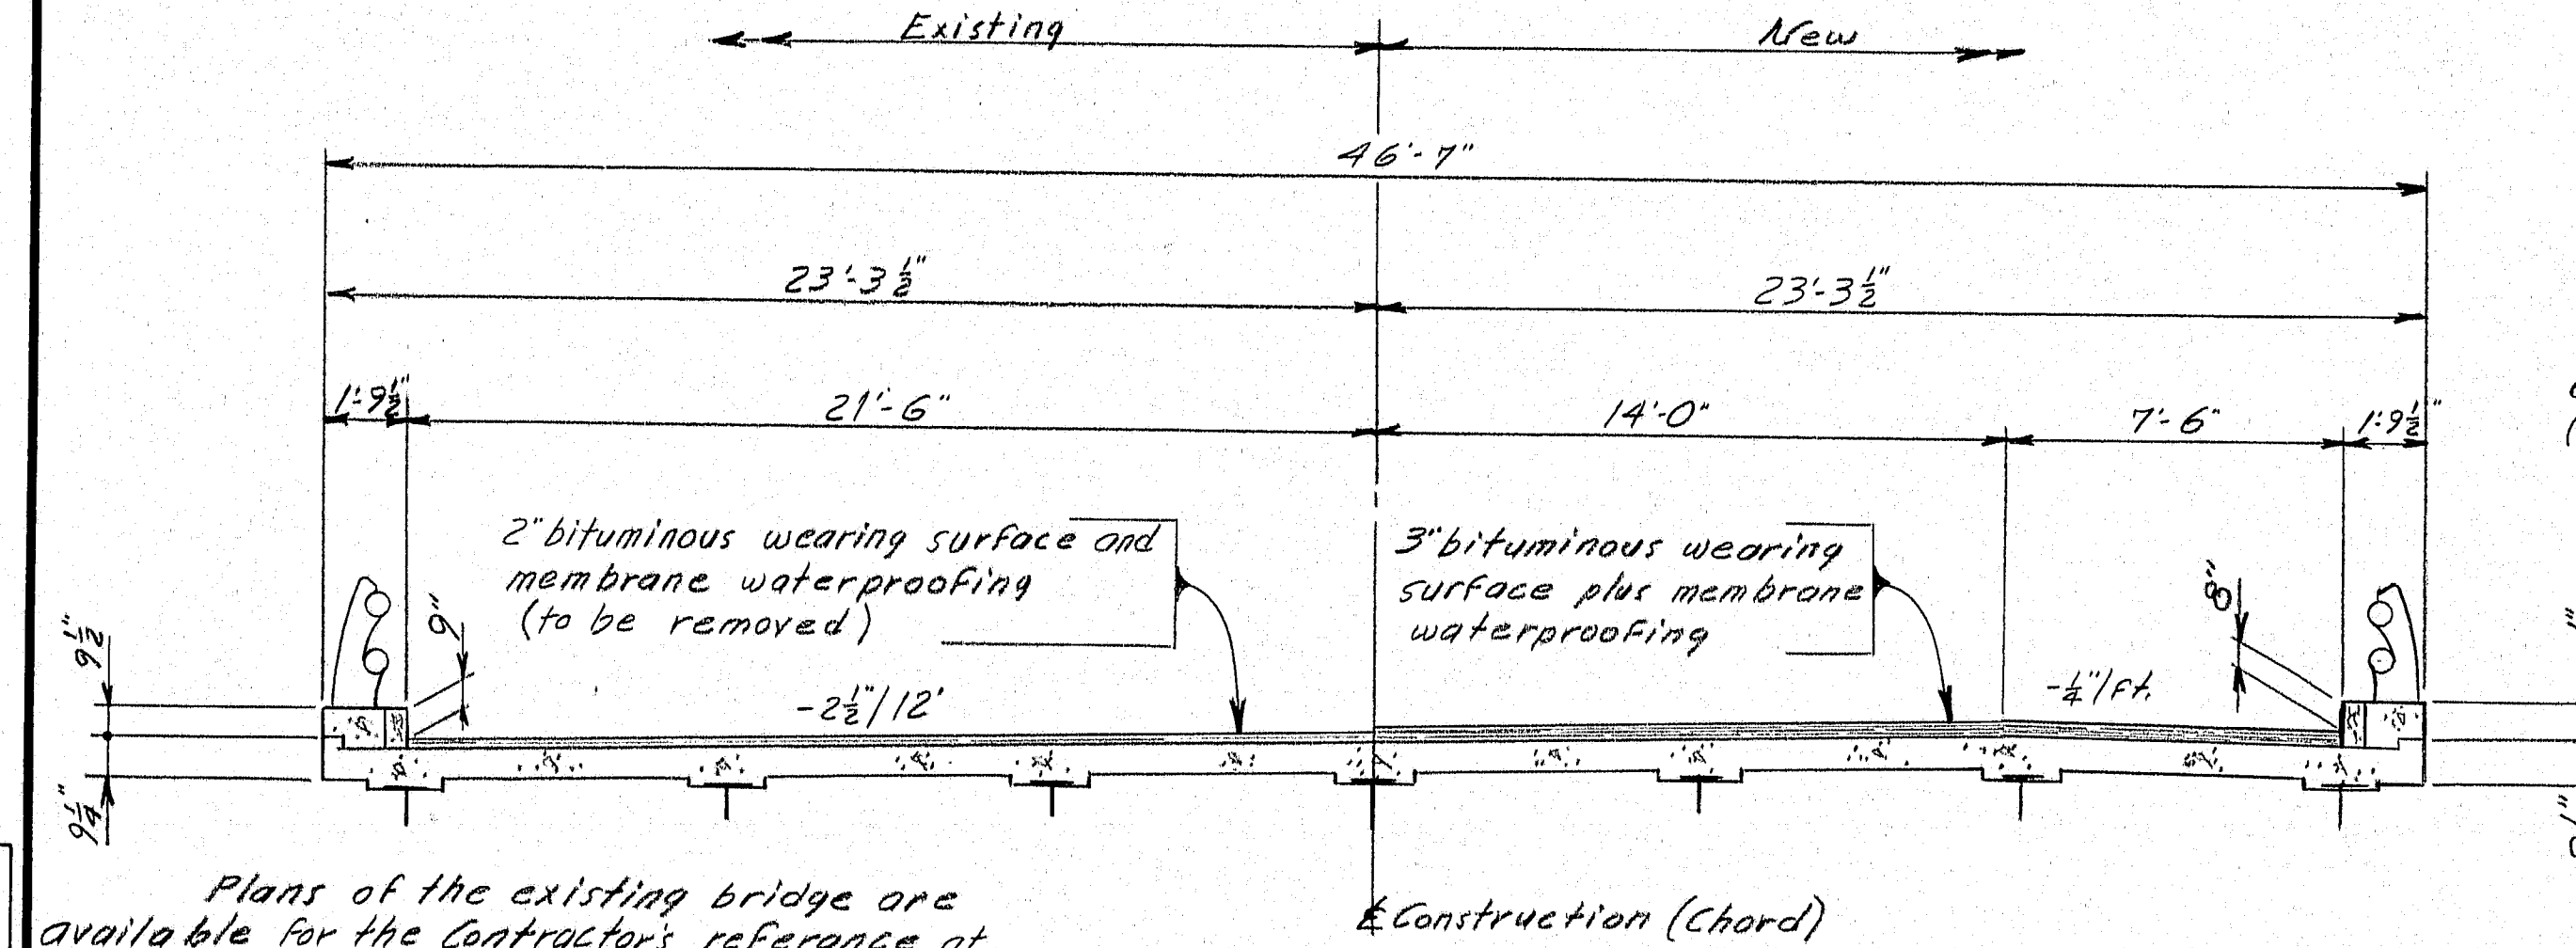 Existing
New
46'-7"
23'-3½"
23'-3½"
1'-9½"
21'-6"
14'-0"
7'-6"
1'-9½"
2" bituminous wearing surface and
membrane waterproofing
(to be removed)
3" bituminous wearing
surface plus membrane
waterproofing
9"
8"
9½"
-2½"/12'
-¼"/ft.
9¼"
Plans of the existing bridge are
available for the Contractor's referance at
℄ Construction (Chord)